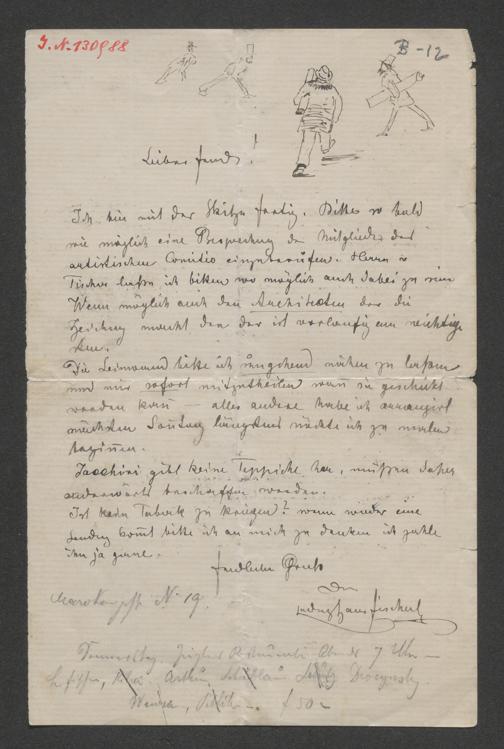 I. N. 130988
B-12
Lieber Freund!
Ich bin mit der Skitze fertig. Bitte so bald
wie möglich eine Besprechung der Mitglieder des
artistischen Comitio einzuberufen. Herrn v
Tischer lassen ich bitten wo möglich auch dabei zu sein
Wenn möglich auch den Architecten der die
Zeichnung macht den der ist vorläufig am wichtigs
ten.
Die Leinwand bitte ich umgehend nähen zu lassen
und mir sofort mitzutheilen wann sie geschickt
werden kann – alles andere habe ich arrangirt
nächsten Sonntag längstens möchte ich zu malen
beginnen.
Jacchini gibt keine Teppiche her, müssen daher
anderwärts beschaffen werden.
Ist kein Taback zu kriegen? wenn wieder eine
Sendung kommt bitte ich an mich zu denken ich zahle
ihn ja gerne.
freundlichen Gruß
Dein
Ludwig Hans Fischer
N. 19.
Donnerstag Abends 7 Uhr –
Fischer, Arthur,
£ 50 –